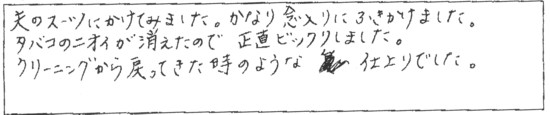 夫のスーツにかけてみました。かなり念入りにふきかけました。
タバコのニオイが消えたので 正直ビックリしました。
クリーニングから戻ってきた時のような 仕上りでした。